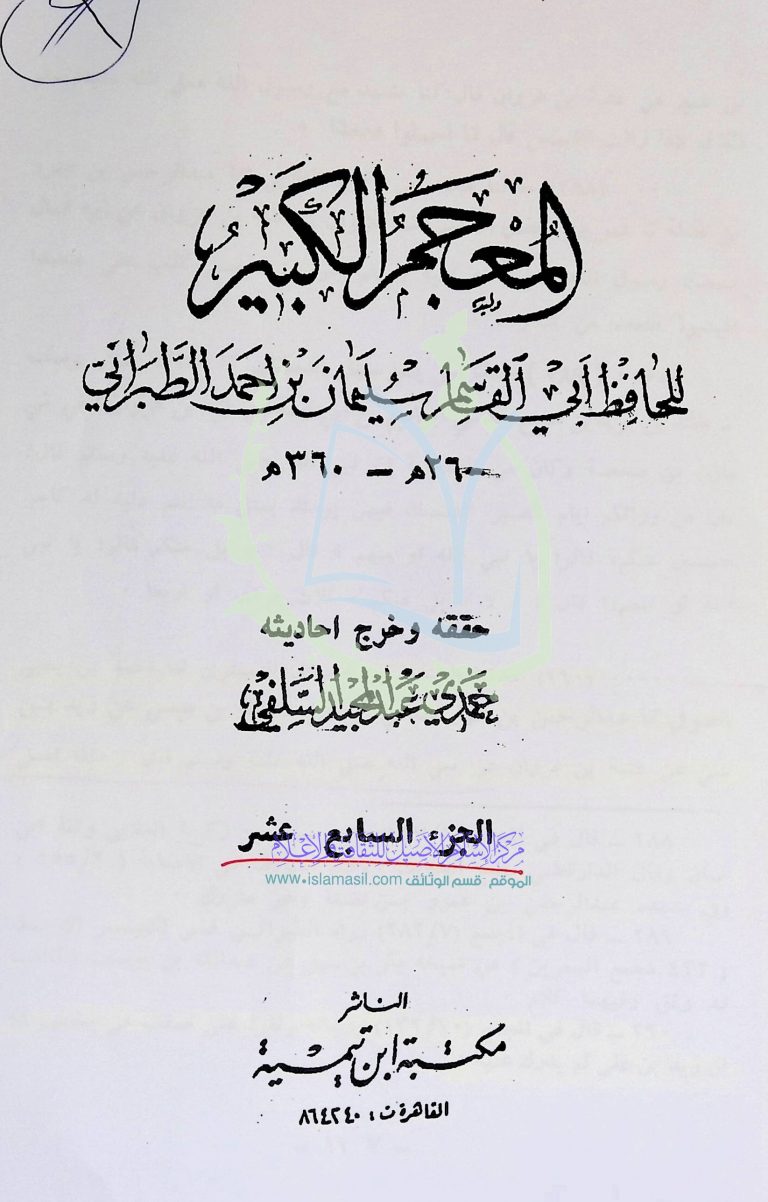 المُعْجَمُ الكَبِيْرُ
للحَافِظِ أَبِي القَاسِمِ سُلَيْمَانَ بْنِ أَحْمَدَ الطَّبَرَانِيّ
٢٦٠ھ – ٣٦٠ھ
حققه وخرج احاديثه
حَمْدِي عَبْدالمجِيد السَّلَفِي
الجزء السابع عشر
مركز الإسلام الأصيل للثقافة والإعلام
الموقع - قسم الوثائق www.islamasil.com
الناشر
مكتبة ابن تيمية
القاهرة ت : ٨٦٤٢٤٠